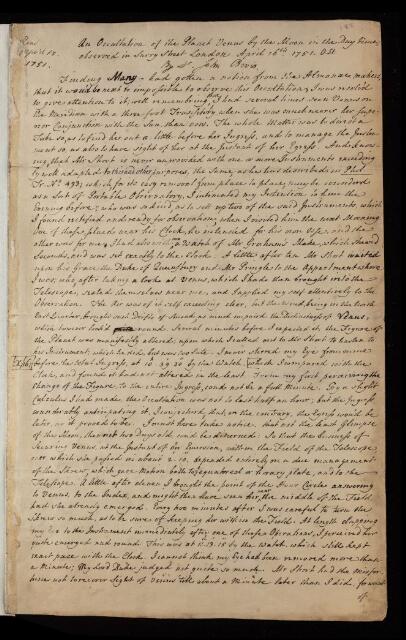 Read April 18. 1751.
An Occultation of the Planet Venus by the Moon in the Day time,
observed in Surry Street London April 16th 1751. O.St.
By Dr. John Bevis
Finding Many had gotten a notion from the Almanac makers,
that it would be next to impossible to observe this Occultation, I was resolved
to give attention to it, well remembring, I had several times seen Venus on
the Meridian with a three foot Transitory when she was much nearer her Superior
Conjunction with the Sun than now. The whole Matter was to direct a
Tube so, as to find her out a little before her Ingress, and to manage the Instrument
so as also to have sight of her at the instant of her Egress. And knowing
that Mr. Short is never unprovided with one or more Instruments exceedingly
well adapted to these and other purposes, the same, as has been described in Phil
Tr. No. 493, which for its easy removal from place to place, may be considered
as a sort of Portable Observatory, I intimated my Intention to him the
Evening before, who was as kind as to set up two of the said Instruments, which
I found rectified and ready for observation, when I visited him the next Morning
One of these plac'd near his Clock, he intended for his own Use, and the
other was for me, I had also with me a Watch of Mr. Graham's Make, which shewed
Seconds, and was set exactly to the Clock. A little after ten Mr. Short waited
upon his Grace the Duke of Queensbury and Mr. Pringle to the Appartment where
I was, who after taking a look at Venus, which Mr. Short had then brought into the
Telescope, seated themselves near me, and I applied my self attentively to the
Observation. The Air was of it self exceeding clear, but the Wind, being in the North
East Quarter, brought most Drifts of Smoak, as much impaired the Distinctness of Venus,
which however look'd round. Several minutes before I expected it, the Figure of
the Planet was manifestly altered; upon which I called out to Mr. Short to hasten to
his Instrument, which he did, but was too late. I never stirred my Eye from mine
before the total Ingress, at 10. 29. 20 by the Watch, which I compared with the
Clock, and found it had not altered in the least. From my first perceiving the
change of the Figure, to the entire Ingress, could not be a full Minute. By a slight
Calculus I had made the Occultation was not to last half an hour; but the Ingress
considerably anticipating it, I concluded, that on the contrary, the Egress would be
later, as it proved to be. I must here take notice, that not the least Glimpse
of the Moon, then not two Days old, could be discerned: So that the Business of
securing Venus, at the Instant of her Emersion, within the Field of the Telescope
over which she passed in about 2.10, depended entirely on a due management
of the Screw, which gave Motion both to Equatoreal or hourary plate, and to the
Telescope. A little after eleven I brought the point of the Hour Circle answering
to Venus, to the Index, and might then have seen her near the middle of the Field,
had she already emerged. Every two minutes after I was careful to turn the
Screw as much, as to be sure of keeping her within the Field. At length clapping
my Eye to the Instrument immediately after one of these Operations, I perceived her
quite emerged and round. This was at 11. 19. 15 by the Watch, which still kept
exact pace with the Clock. I cannot think my Eye had been removed more than
a Minute; My Lord Duke judged not quite so much. Mr. Short had the misfortune
not to recover sight of Venus till about a Minute later than I did, for want
of